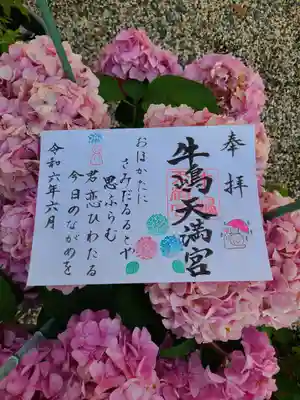 奉拝
牛嶋天満宮
おほかたに
さみだるるとや
思ふらむ
君恋ひわたる
今日のながめを
令和六年六月